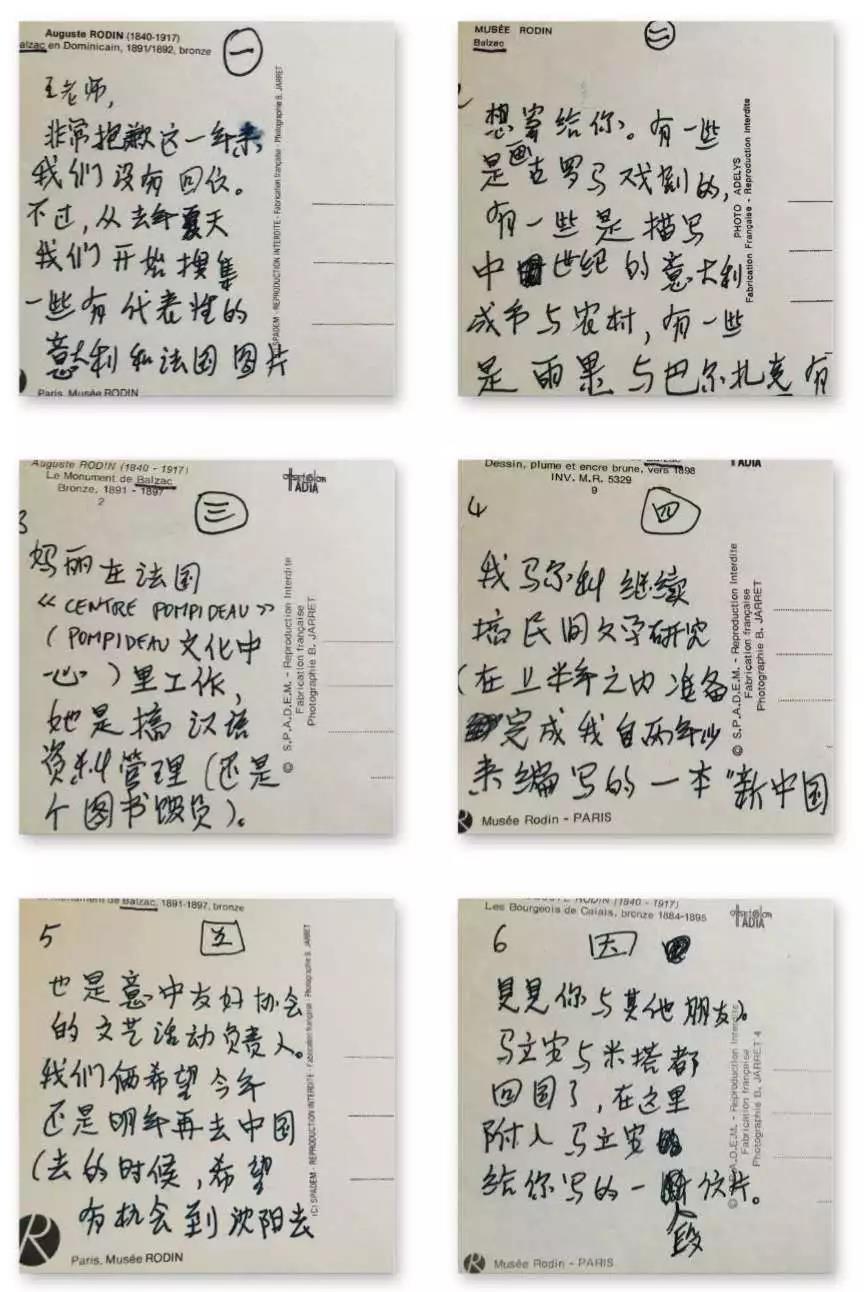 Auguste RODIN (1840-1917)
Balzac en Dominicain, 1891/1892, bronze
一
王老师,
非常抱歉这一年来,
我们没有回信。
不过,从去年夏天
我们开始搜集
一些有代表性的
意大利和法国图片
SPADEM - REPRODUCTION INTERDITE - Fabrication française - Photographie B. JARRET
Paris, Musée RODIN
MUSÉE RODIN
Balzac
二
想寄给你。有一些
是画古罗马戏剧的,
有一些是描写
中世纪的意大利
城市与农村,有一些
是雨果与巴尔扎克有
PHOTO ADELYS
Fabrication Française - Reproduction interdite
Auguste RODIN (1840 - 1917)
Le Monument de Balzac
Bronze, 1891 - 1897
2
ADIA
3
三
妈丽在法国
《CENTRE POMPIDEAU》
(POMPIDEAU 文化中
心)里工作,
她是搞汉语
资料管理(还是
个图书馆员)。
© S.P.A.D.E.M. - Reproduction Interdite
Fabrication française
Photographie B. JARRET
Dessin, plume et encre brune, vers 1898
INV. M.R. 5329
9
ADIA
4
四
我马尔纠继续
搞民间文学研究
(在上半年之内准备
完成我自两年以
来编写的一本"新中国
© S.P.A.D.E.M. - Reproduction Interdite
Fabrication française
Photographie B. JARRET
Musée Rodin - PARIS
Monument de Balzac, 1891-1897, bronze
5
五
也是意中友好协会
的文艺活动负责人。
我们俩希望今年
还是明年再去中国
(去的时候,希望
有机会到沈阳去
(C) SPADEM - REPRODUCTION INTERDITE - Fabrication française - Photographie B. JARRET
Paris, Musée RODIN
RODIN (1840 - 1917)
Les Bourgeois de Calais, bronze 1884-1895
ADIA
6
見見你与其他朋友)。
马立安与米塔都
回国了,在这里
附入马立安
给你写的一段信片。
© S.P.A.D.E.M. - Reproduction Interdite
Fabrication française
Photographie B. JARRET 4
Musée Rodin - PARIS